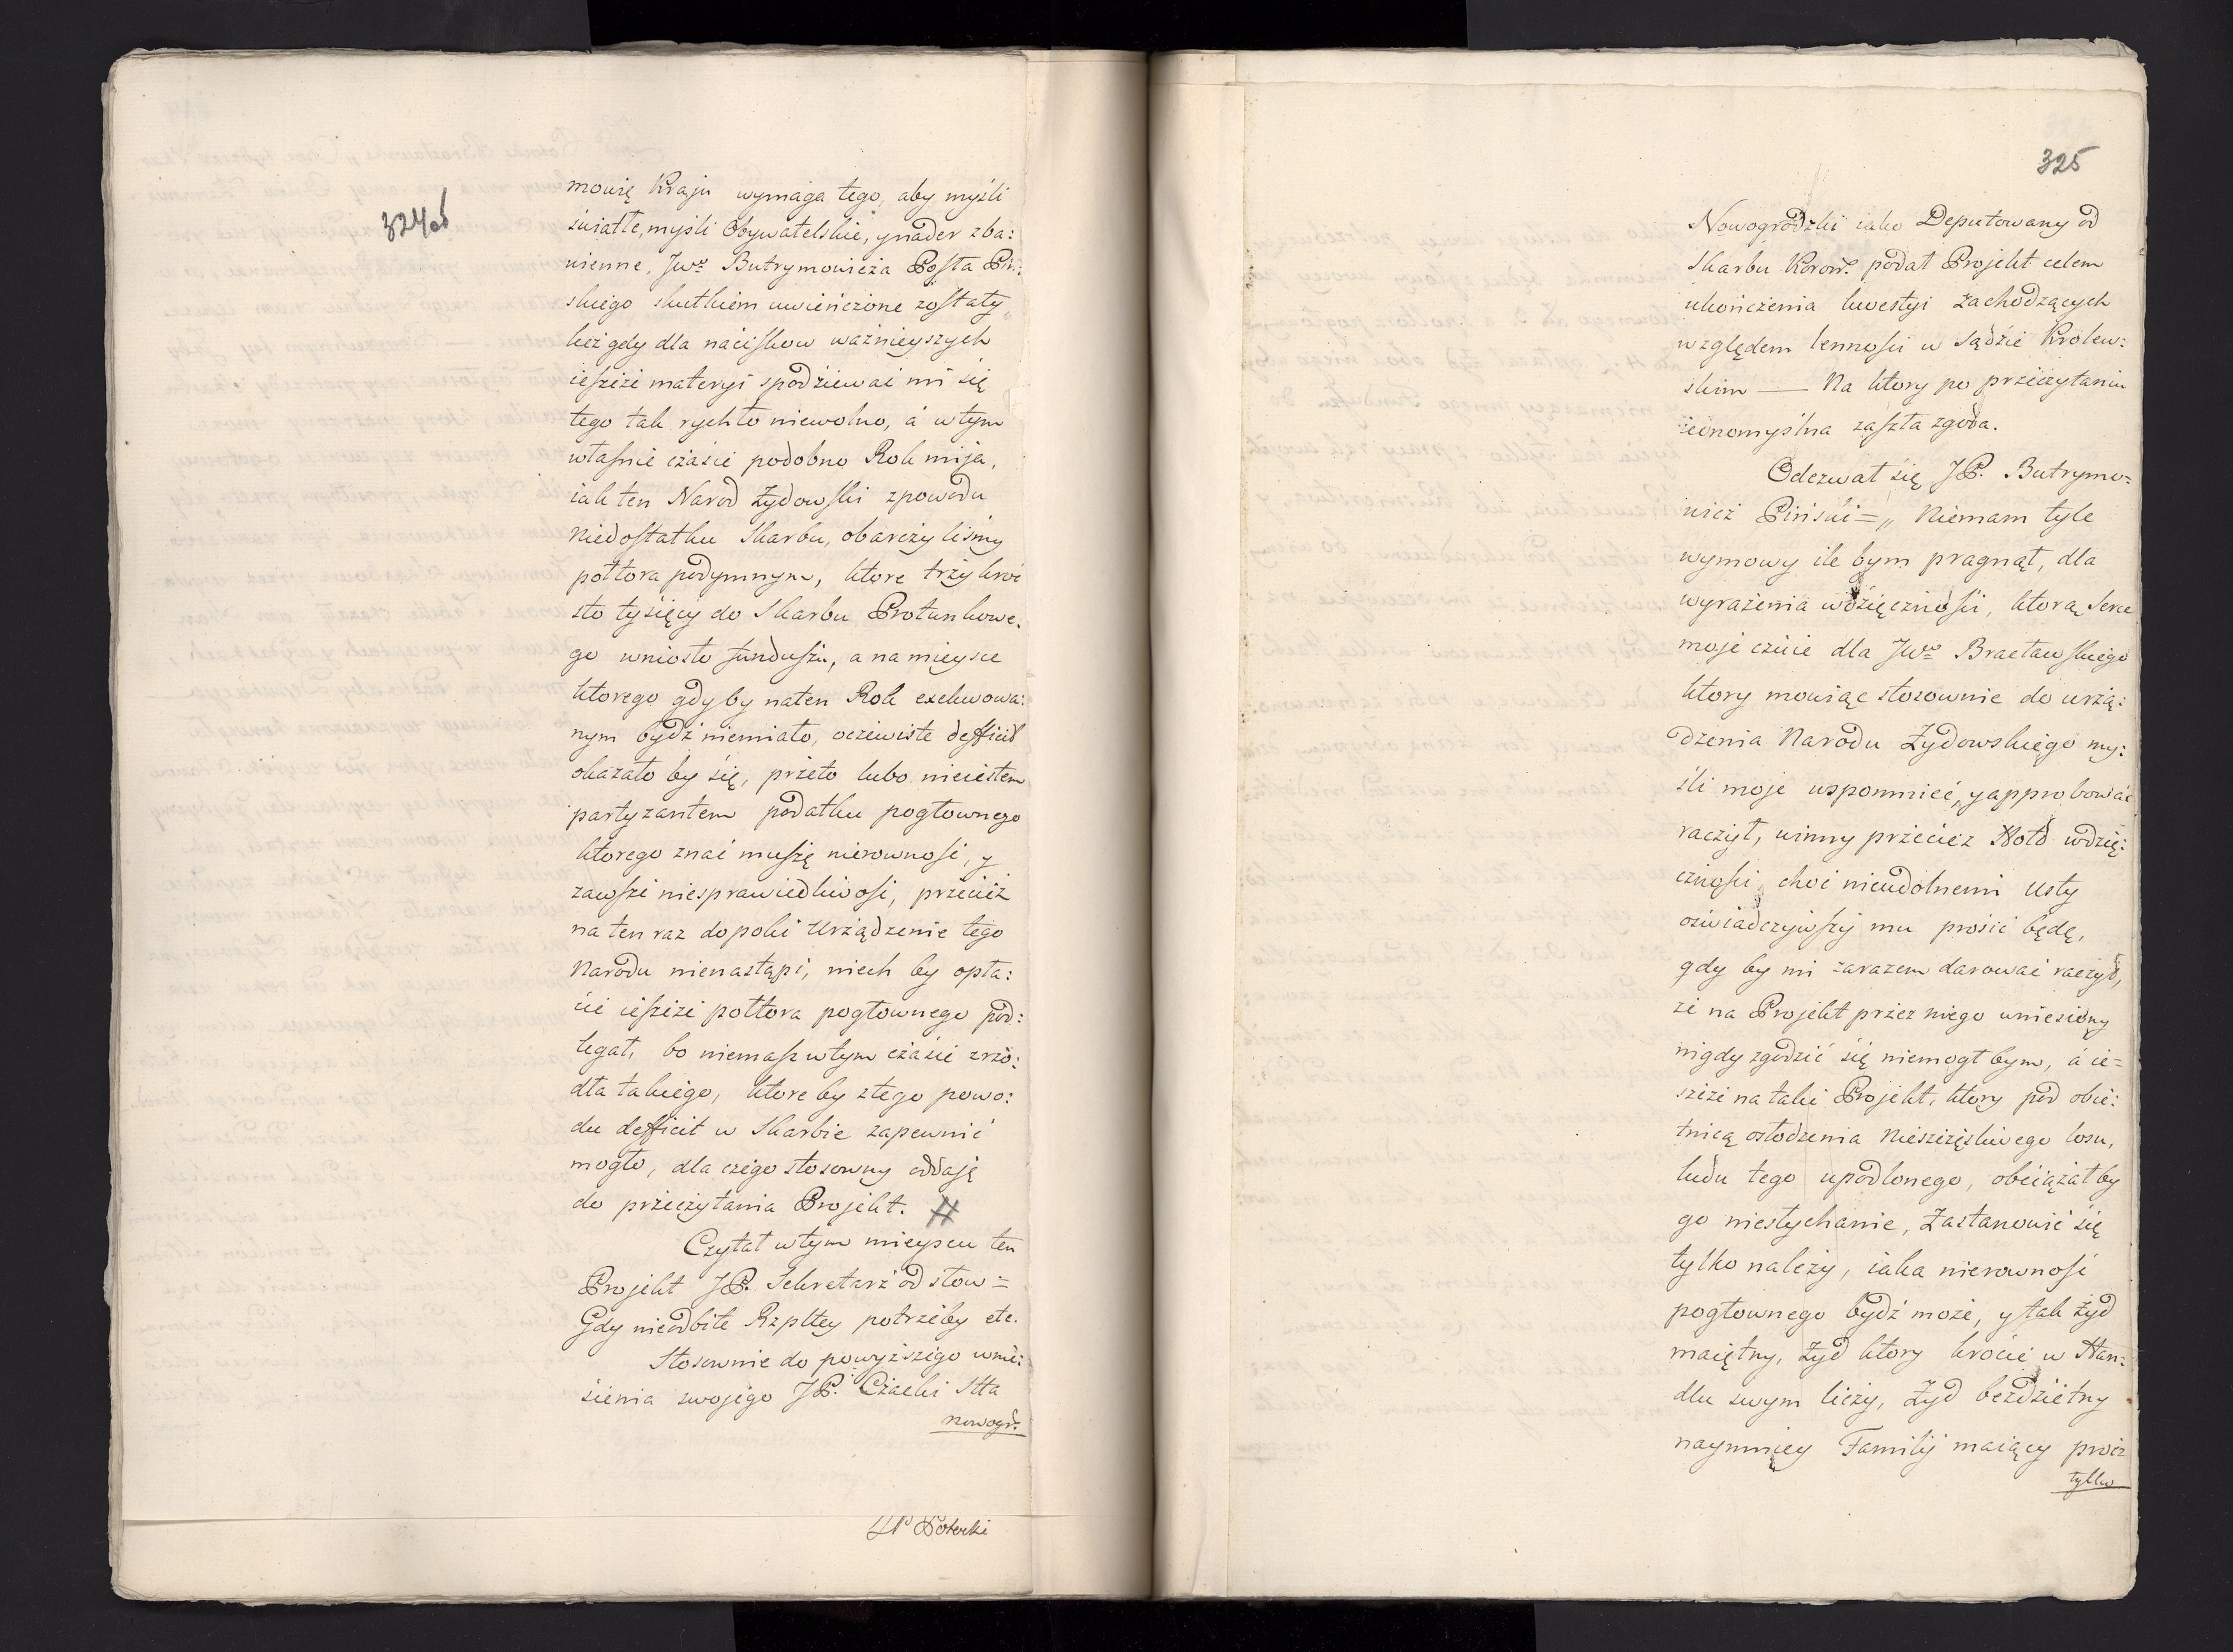 324od
mowię Kraju wymaga tego, aby myśli
światłe, myśli Obywatelskie, ynader zba:
wienne, JWo Butrymowicza Posła Piń:
skiego skutkiem uwieńczone zostały,
lież gdy dla naciskow ważnieyszych
ieszcze materyi spodziewać mi się
tego tak rychło niewolno, á wtym
własnie czasie podobno Rok mija,
iak ten Narod Żydowski zpowodu
Niedostatku Skarbu, obarczyliśmy
połtora podymnym, ktore trzykroć
sto tysięcy do Skarbu Protunkowe:
go wniosło funduszu, a na mieysce
ktorego gdyby naten Rok exekwowa:
nym bydź niemiało, oczewiste defficit
okazało by się, przeto lubo nieiestem
partyzantem podatku pogłownego
ktorego znać muszę nierowność, y
zawsze niesprawiedliwość, przecież
na ten raz dopoki Urządzenie tego
Narodu nienastąpi, niech by opła:
cie ieszcze połtora pogłownego pod:
legał, bo niemasz wtym czasie zrzo:
dła takiego, ktore by ztego powo:
du defficit w Skarbie zapewnić
mogło, dla czego stosowny oddaję
do przeczytania Projekt. #
Czytał wtym mieyscu ten
Projekt JP. Sekretarz od słow =
Gdy nieodbite Rzpltey potrzeby etc.
Stosownie do powyższego wnie:
sienia swojego JP. Czacki Stta
nowogr:
JP Potocki
325
Nowogrodzki iako Deputowany od
Skarbu Koron: podał Projekt celem
ukończenia kwestyi zachodzących
względem lenności w Sądzie Krolew:
skim — Na ktory po przeczytaniu
iednomyślna zaszła zgoda.
Odezwał się JP. Butrymo=
wicz Piński = „ Niemam tyle
wymowy ile bym pragnął, dla
wyrażenia wdzięczności, ktorą Serce
moje czuie dla JWo Bracławskiego
ktory mowiąc stosownie do urzą:
dzenia Narodu Żydowskiego my:
śli moje wspomnieć, y approbować
raczył, winny przecież Hołd wdzię:
czności choć nieudolnemi Usty
oświadczywszy mu prosić będę,
gdy by mi zarazem darować raczył,
że na Projekt przez niego wniesiony
nigdy zgodzić się niemogł bym, á ie=
szcze na taki Projekt, ktory pod obie:
tnicą osłodzenia Nieszczęśliwego losu,
ludu tego upodlonego, obciążał by
go niesłychanie, Zastanowić się
tylko należy, iaka nierowność
pogłownego bydź może, y tak Żyd
maiętny, Żyd ktory krocie w Han:
dlu swym liczy, Żyd bezdzietny
naymniey Familij maiący procz
tylko